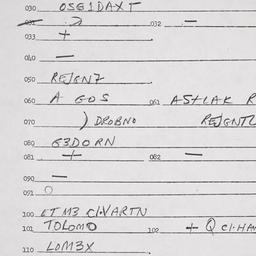 030 OSE1DAXT
031 032 —
033 +
040 —
050 REJGN7
060 A GOS 061 ASTLAK R
070 ) DROBNO REJGNTL
080 G3DORN
081 + 082 —
090 —
091 O
100 ET M3 CI.VARTN
101 TOLOMO 102 + Q CI-HAN
110 LOM3X